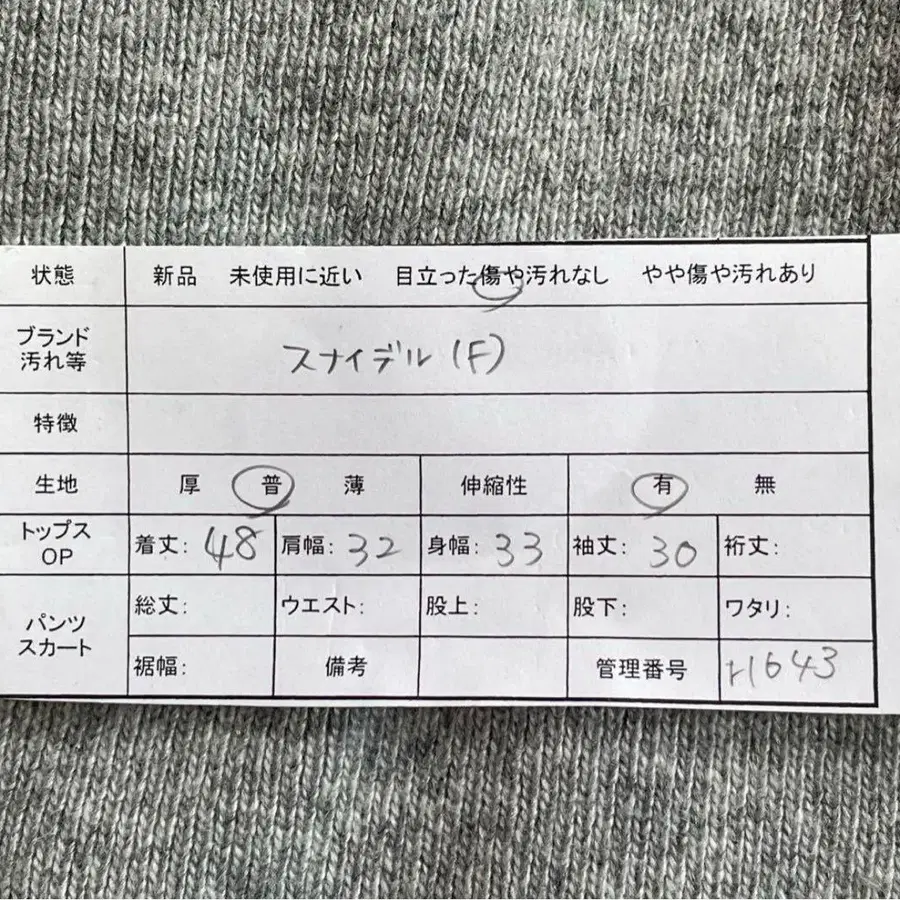 状態 新品 未使用に近い 目立った傷や汚れなし やや傷や汚れあり
ブランド
汚れ等
スナイデル(F)
特徴
生地 厚 普 薄 伸縮性 有 無
トップス
OP
着丈: 48 肩幅: 32 身幅: 33 袖丈: 30 裄丈:
パンツ
スカート
総丈: ウエスト: 股上: 股下: ワタリ:
裾幅: 備考 管理番号 H1643